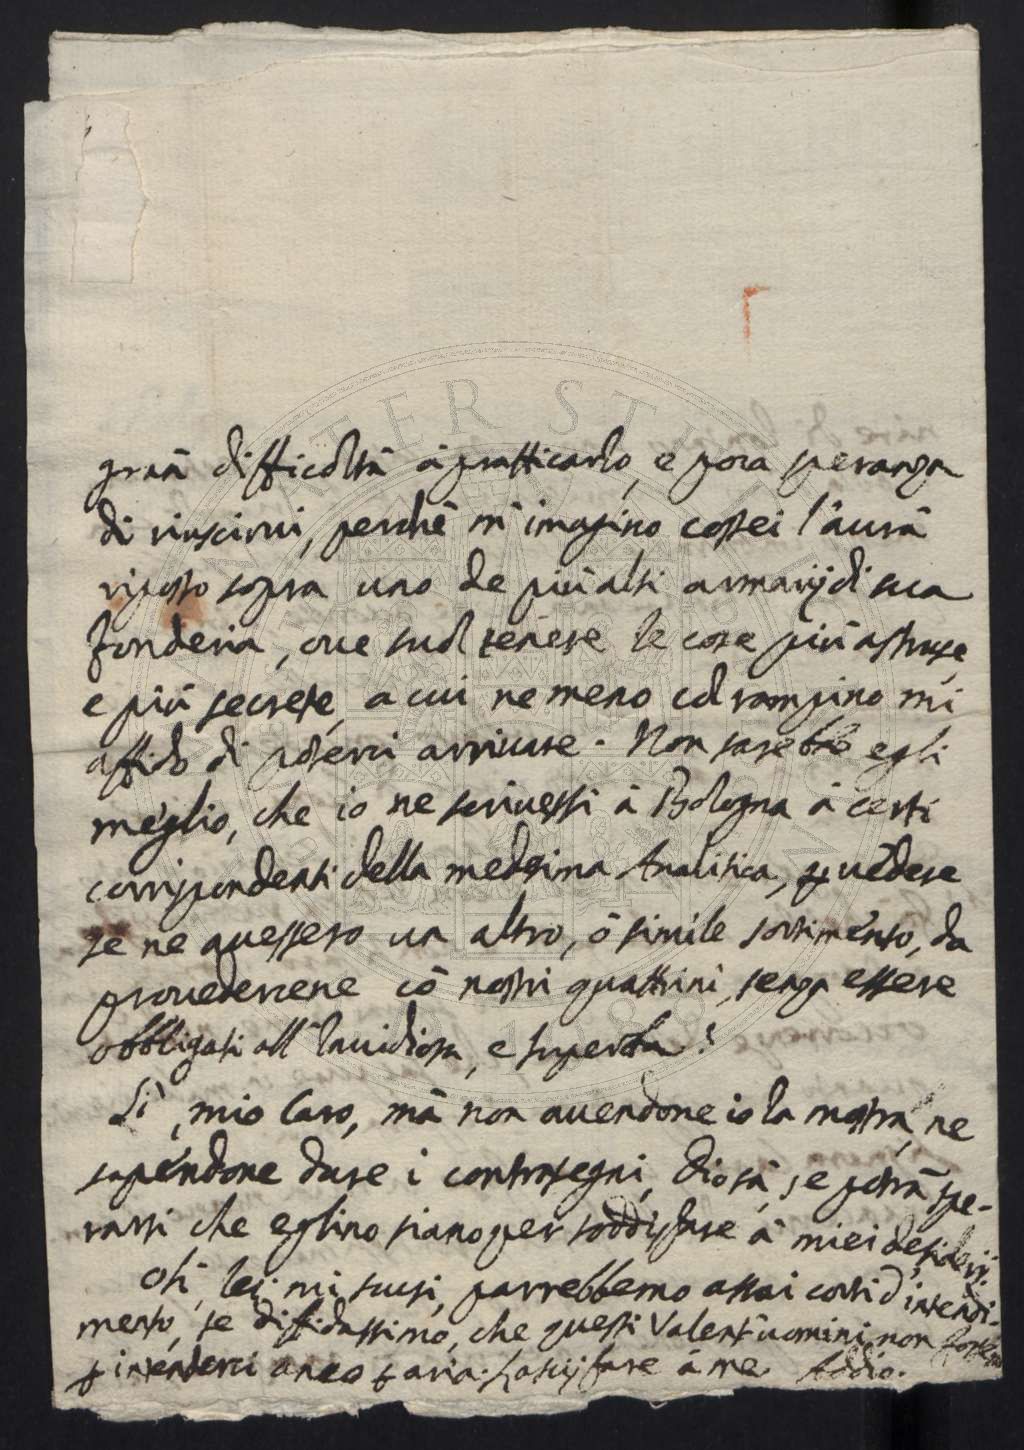 gran difficoltà à pratticarlo, e poca speranza
di riuscirvi, perchè m'imagino costei l'aurà
riposto sopra uno de più alti armarij di sua
fonderia, oue suol tenere le cose più astruse,
e più secrete, a cui ne meno col rampino mi
affido di poterci arriuare. Non sarebbe egli
meglio, che io ne scriuessi à Bologna à certi
corrispondenti della medesima Analitica, p uedere
se ne auessero un altro, ò simile sortimento, da
prouedercene cō nostri quattrini, senza essere
obbligati all'Inuidiosa, e superba?
Sì, mio Caro, mà non auendone io la mostra, ne
sapendone dare i contrasegni, Dio sà, se potrà spe-
rarsi che eglino siano per soddisfare à miei desiderij.
Oh, lei mi scusi, parrebbemo assai corti d'intendi-
mento, se diffidassimo, che questi Valent'uomini non
p intenderci anco p aria. Lascij fare à me. Addio.